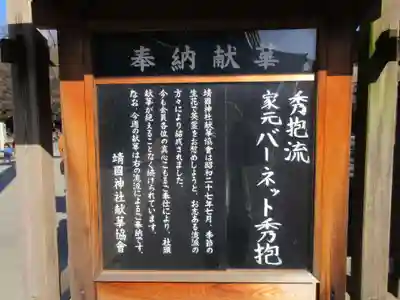 奉納献華
秀抱流
家元バーネット秀抱
靖國神社献華協會は昭和二十七年七月、季節の
生花で英霊をお慰めしようと、お志ある流派の
方々により結成されました。
今も会員各位の真心こもるご奉仕により、社頭に
献華が絶えることなく続けられています。
なお、今週の献華は右の流派によるご奉納です。
靖國神社献華協會